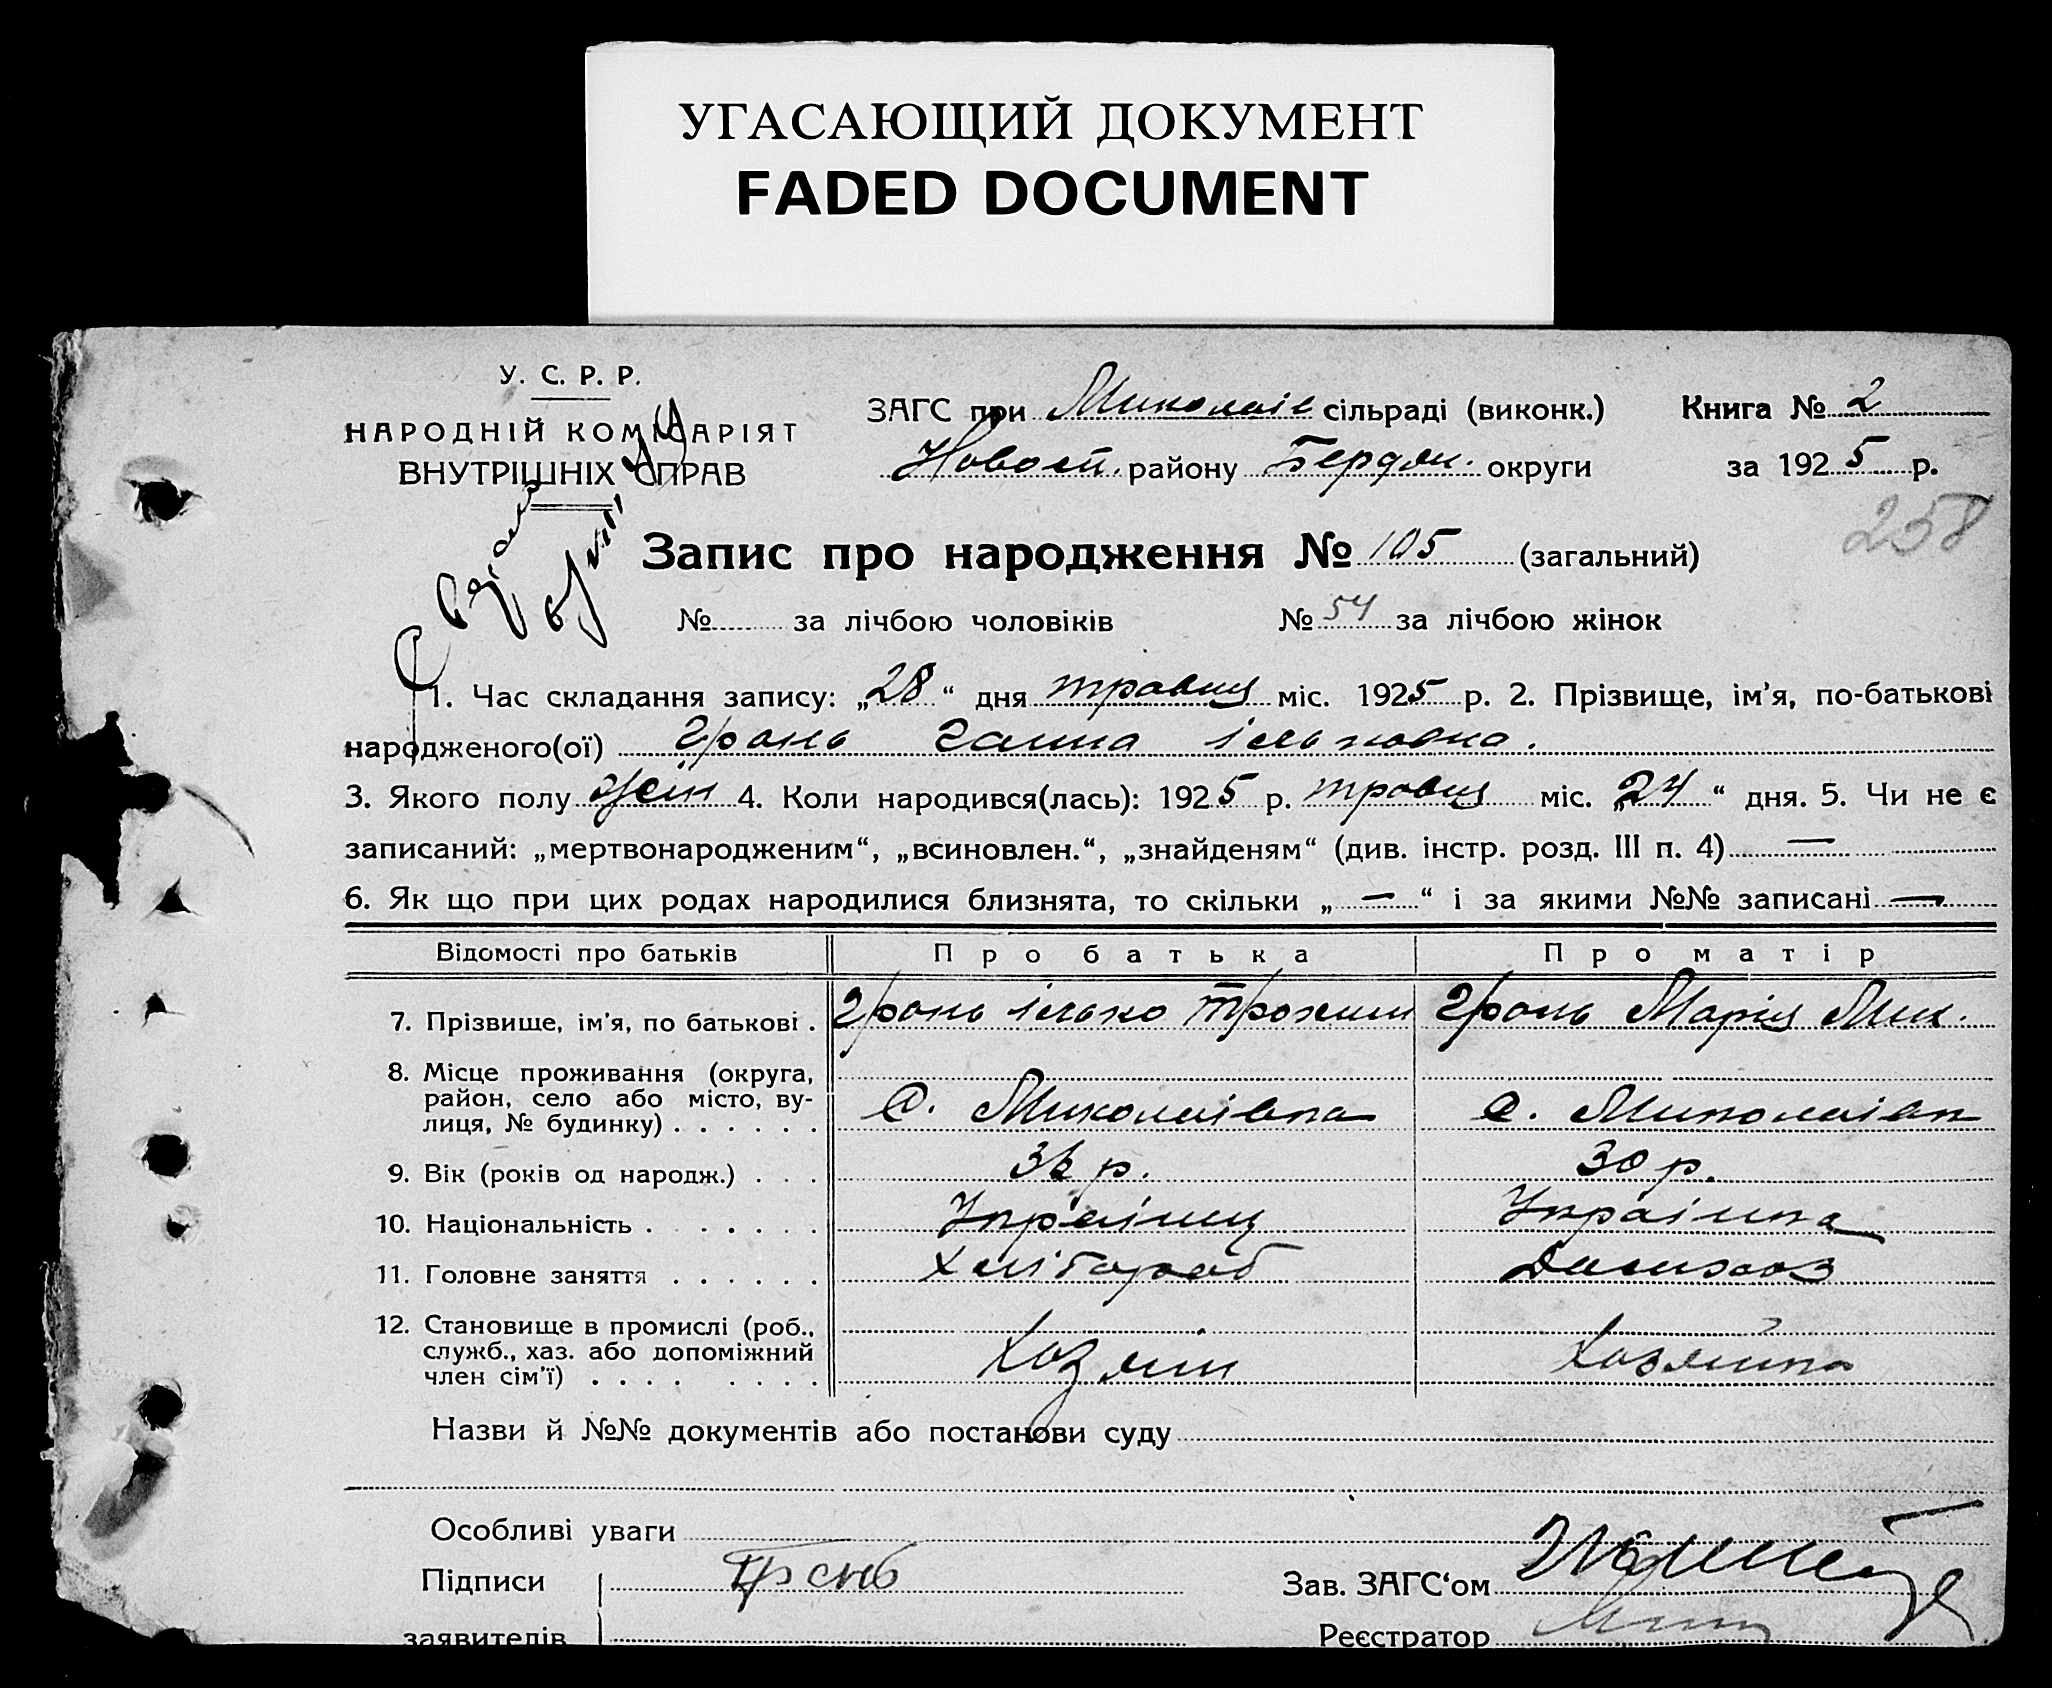 УГАСАЮЩИЙ ДОКУМЕНТ
FADED DOCUMENT
У. С. Р. Р.
НАРОДНІЙ КОМІСАРІЯТ
ВНУТРІШНІХ СПРАВ
ЗАГС при Миколаїв сільраді (виконк.)
Книга № 2
Новосп. району Бердян. округи
за 1925 р.
258
Запис про народження № 105 (загальний)
№ за лічбою чоловіків № 54 за лічбою жінок
1. Час складання запису: „28“ дня травня міс. 1925 р. 2. Прізвище, ім'я, по-батькові
народженого(ої) Грань Ганна Ільковна.
3. Якого полу жін 4. Коли народився(лась): 1925 р. травня міс. „24“ дня. 5. Чи не є
записаний: „мертвонародженим“, „всиновлен.“, „знайденям“ (див. інстр. розд. III п. 4) —
6. Як що при цих родах народилися близнята, то скільки „—“ і за якими №№ записані —
Відомості про батьків Про батька Про матір
7. Прізвище, ім'я, по батькові . Грань Ілько Трохим Грань Марія Мик.
8. Місце проживання (округа,
район, село або місто, ву-
лиця, № будинку) . . . . . . С. Миколаївка с. Миколаївк
9. Вік (років од народж.) . . . р. 30 р.
10. Національність . . . . . . . Українец Українка
11. Головне заняття . . . . . . Хлібороб Домхоз
12. Становище в промислі (роб.,
служб., хаз. або допоміжний
член сім'ї) . . . . . . . . Хозяїн Хозяйка
Назви й №№ документів або постанови суду
Особливі уваги
Підписи
Зав. ЗАГС'ом
заявителів
Реєстратор